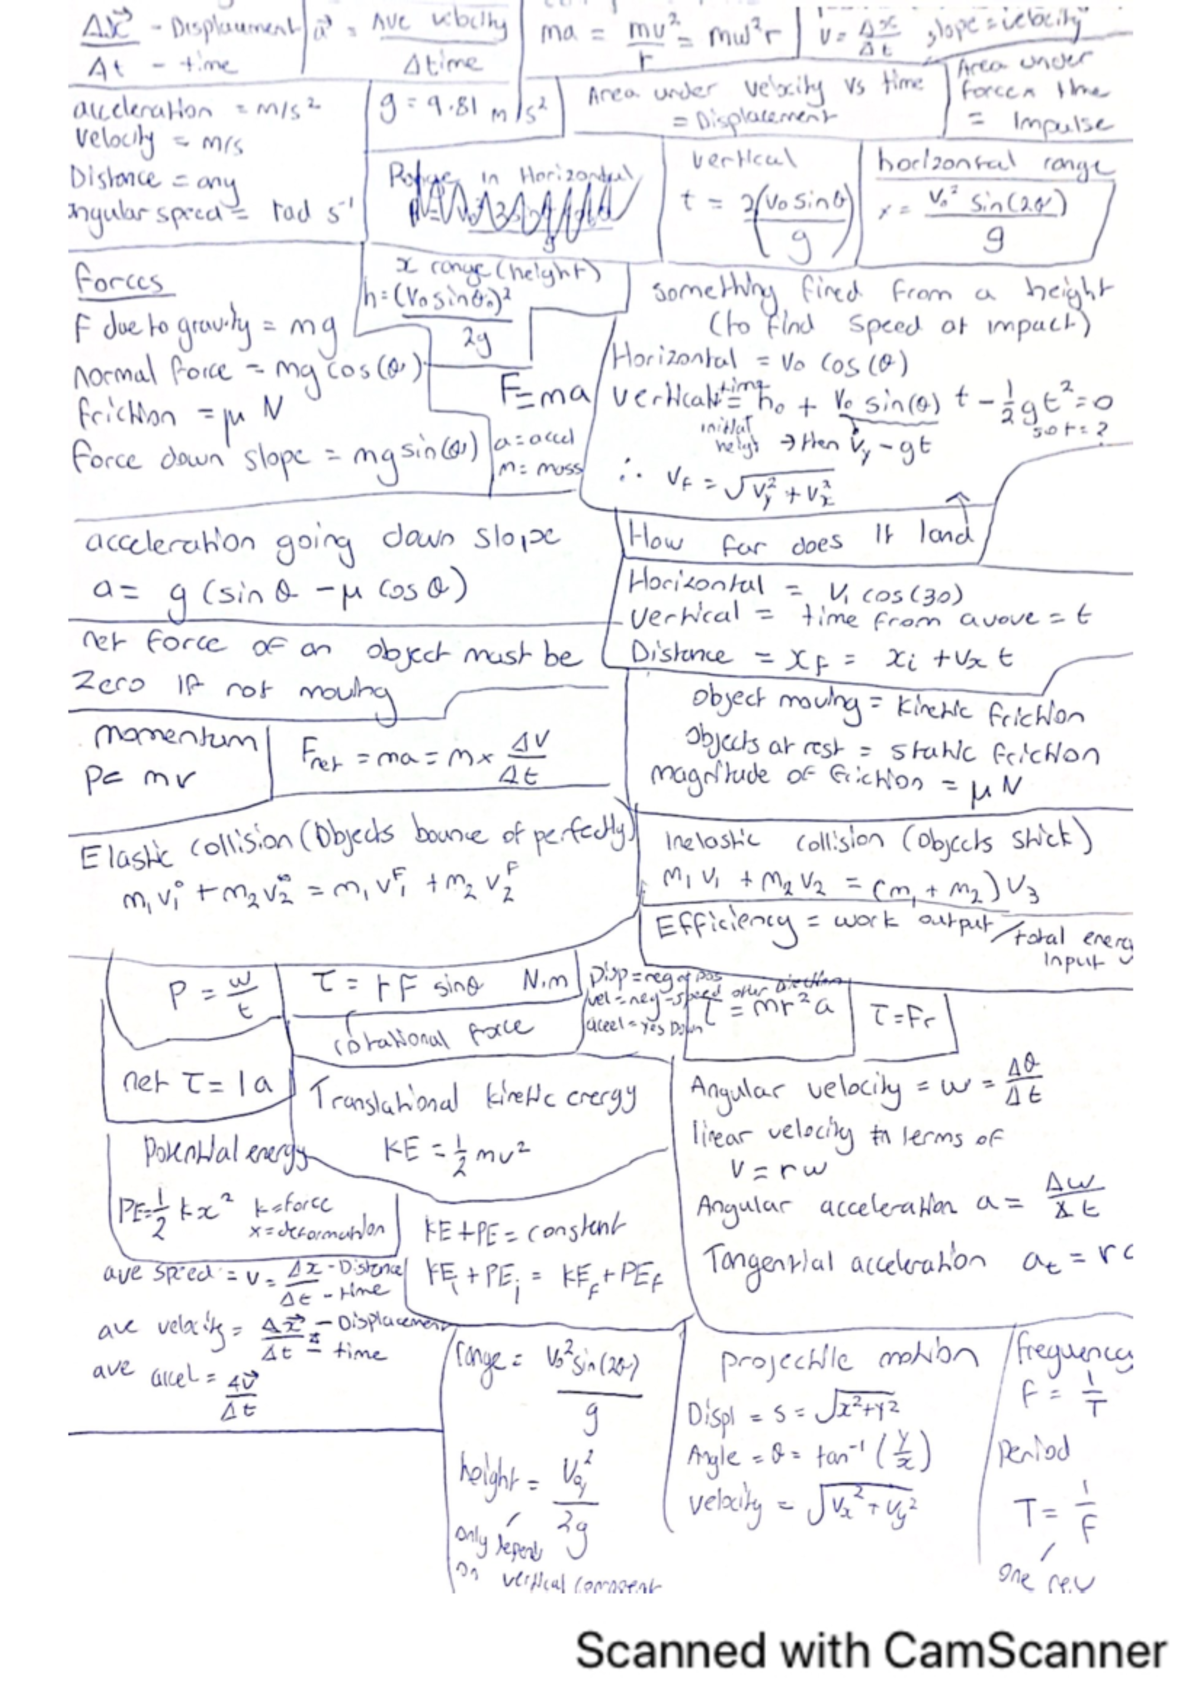 Δx⃗ - Displacement
Δt - time
a⃗ = Ave velocity
Δtime
ma = mv²/r = mω²r
v = Δx/Δt , slope = velocity
acceleration = m/s²
velocity = m/s
Distance = any
angular speed = rad s⁻¹
g = 9.81 m/s²
Area under velocity vs time
= Displacement
Area under
force n time
= Impulse
in Horizontal
vertical
t = 2(V₀ sinθ / g)
horizontal range
x = V₀² sin(2θ) / g
Forces
F due to gravity = mg
normal force = mg cos(θ)
friction = μ N
force down slope = mg sin(θ)
x range (height)
h = (V₀ sinθ₀)² / 2g
F=ma
a = accel
m = mass
something fired from a height
(to find speed at impact)
Horizontal = V₀ cos(θ)
vertical time = h₀ + V₀ sin(θ) t - ½gt² = 0
initial height
so t = ?
→ then Vy - gt
∴ VF = √Vy² + Vx²
acceleration going down slope
a = g (sin θ - μ cos θ)
How far does it land
Horizontal = V₁ cos(30)
vertical = time from avove = t
Distance = xF = xi + Vx t
net force of an object must be
zero if not moving
object moving = kinetic friction
Objects at rest = static friction
magnitude of friction = μ N
momentum
P = mv
Fnet = ma = m × ΔV/Δt
Elastic collision (Objects bounce of perfectly)
m₁v₁° + m₂v₂° = m₁v₁F + m₂v₂F
Inelastic collision (objects stick)
m₁v₁ + m₂v₂ = (m₁ + m₂)v₃
Efficiency = work output / total energ
input
P = w/t
τ = rF sinθ N.m
rotational force
Disp = neg or pos
vel = neg - speed other direction
accel = yes Down
τ = mr²a
τ = Fr
net τ = Ia
Translational kinetic energy
KE = ½ mv²
Angular velocity = w = Δθ/Δt
linear velocity in terms of
v = rw
Angular acceleration a = Δw/Δt
Tangential acceleration at = r
Potential energy
PE = ½ kx²
k = force
x = deformation
KE + PE = constant
KEi + PEi = KEF + PEF
ave speed = v = Δx - Distance
Δt - time
ave velocity = Δx⃗ - Displacement
Δt = time
ave accel = Δv⃗
Δt
range = V₀² sin(2θ)
g
height = V₀y²
2g
only depends
on vertical component
projectile motion
Displ = s = √x²+y²
Angle = θ = tan⁻¹ (y/x)
velocity = √Vx² + Vy²
frequency
F = 1/T
Period
T = 1/F
one rev
Scanned with CamScanner